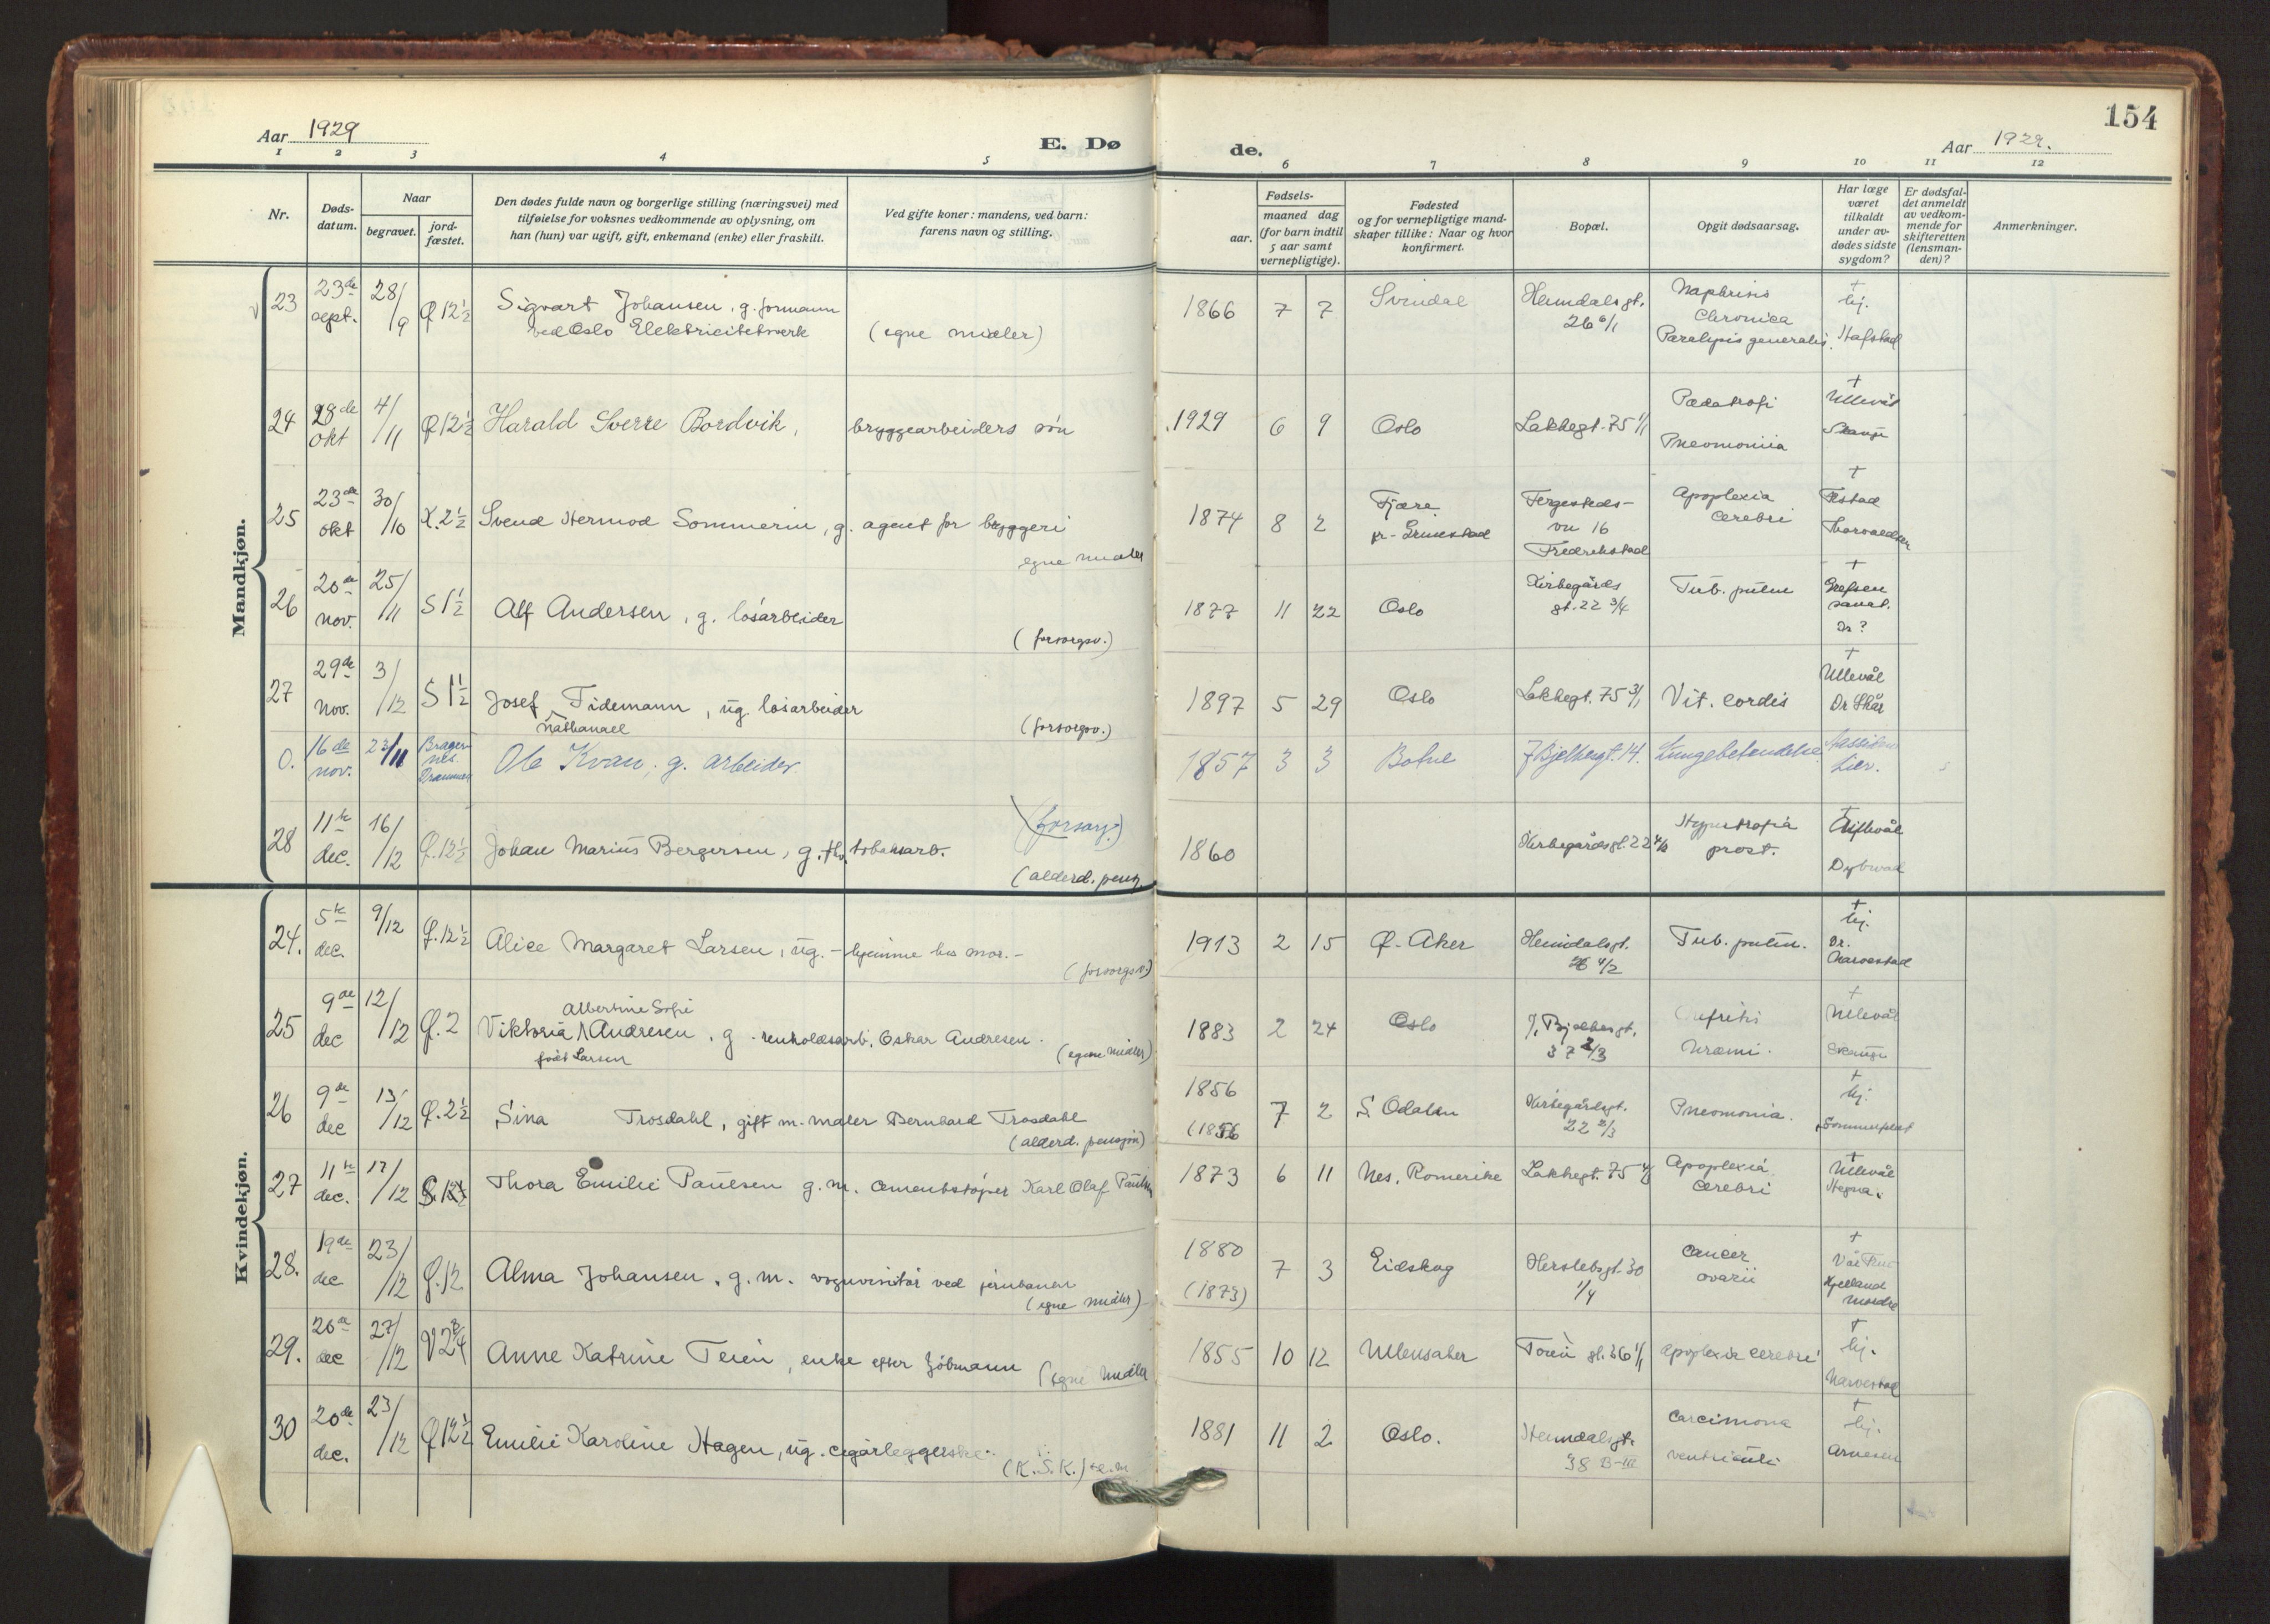 154
Aar 1929 E. Dø de. Aar 1929.
1 2 3 4 5 6 7 8 9 10 11 12
Nr.
Døds-
datum.
Naar
begravet.
jord-
fæstet.
Den dødes fulde navn og borgerlige stilling (næringsvei) med
tilføielse for voksnes vedkommende av oplysning, om
han (hun) var ugift, gift, enkemand (enke) eller fraskilt.
Ved gifte koner: mandens, ved barn:
farens navn og stilling.
Fødsels-
aar.
maaned dag
(for barn indtil
5 aar samt
vernepligtige).
Fødested
og for vernepligtige mand-
skaper tillike: Naar og hvor
konfirmert.
Bopæl.
Opgit dødsaarsag.
Har læge
været
tilkaldt
under av-
dødes sidste
sygdom?
Er dødsfal-
det anmeldt
av vedkom-
mende for
skifteretten
(lensman-
den)?
Anmerkninger.
Mandkjøn.
23 23de sept. 28/9 Q 12½ Sigvart Johansen, g. formann
ved Oslo Elektricitetsverk (egne midler)
1866 7 7 Svindal Heimdalsgt. 26 6/1 Chronica Paralysis generalis. † hj. Hafstad
24 28de okt 4/11 Q 12½ Harald Sverre Bordvik, bryggearbeiders søn
1929 6 9 Oslo Lakkegt. 75 1/1 Pædatrofi Pneomoniia † Ullevål
25 23de okt 30/10 K. 2½ Svend Hermod Sommerin, g. agent for bryggeri
egne midler
1874 8 2 Fjære pr. Grimstad Fergesteds- vn 16 Fredrikstad Apoplexia Cerebri † Thorvaldsen
26 20de nov. 25/11 S 1½ Alf Andersen, g. løsarbeider
(forsorgsv.)
1877 11 22 Oslo Kirkegårds gt. 22 3/4 Tub. pulm † Grefsen sanat. Dr ?
27 29de nov. 3/12 S 1½ Josef Tidemann, ug. løsarbeider
Nathanael (forsorgsv.)
1897 5 29 Oslo Lakkegt. 75 3/1 Vit. cordis † Ullevål Dr Skår
0. 16de nov. 23/11 Bragernes Drammen Ole Kvan, g. arbeider.
(forsorg.)
1857 3 3 Botne J Bjelkesgt. 14. Lungebetendelse Lier.
28 11te dec. 16/12 Q. 12½ Johan Marius Bergersen, g. fhv. tobaksarb.
(alderd. pens.
1860 Kirkegårdsgt. 22 Hypertrofia prost. † Ullevål Dybwad
Kvindekjøn.
24. 5te dec. 9/12 Q. 12½ Alice Margaret Larsen, ug. - hjemme hos mor. -
(forsorgsv.)
1913 2 15 Ø. Aker Heimdalsgt. 26 4/2 Tub. pulm. † hj. Dr. Narvestad
25 9de dec 12/12 Q. 2 Albertine Sofie
Viktoria Andresen, g. renholdsarb. Oskar Andresen.
født Larsen (egne midler)
1883 2 24 Oslo J. Bjelkesgt. 37 2/3 Nefritis Uræmi. † Ullevål
26 9de dec 13/12 Q. 2½ Sina Trosdahl, gift m. maler Bernhard Trosdahl
(alderd. pensjon)
1856 (1856 7 2 S. Odalen Kirkegårdsgt. 22 2/3 Pneomonia. † hj. Sommerfelt
27 11te dec. 17/12 Thora Emilie Paulsen g. m. cementstøper Karl Olaf Paulsen
1873 6 11 Nes, Romerike Lakkegt. 75 Apoplexia Cerebri † Ullevål Hegna.
28. 19de dec 23/12 Q. 12 Alma Johansen, g. m. vognvisitør ved jernbanen
(egne midler)
1880 (1873) 7 3 Eidskog Herslebsgt. 30 1/4 Cancer ovarii † Vår Frue Kjelland Mørdre
29. 20de dec 27/12 V 2 Anne Katrine Teien, enke efter
(egne midler
1855 10 12 Ullensaker gt. 36 1/1 Apoplexia cerebri † hj. Narvestad
30 20de dec. 23/12 Q 12½ Emilie Karoline Hagen, ug. cigarleggerske.
(K. S. K.)
1881 11 2 Oslo. Heimdalsgt. 38 B-III Carcimona ventriculi † hj. Arnesen